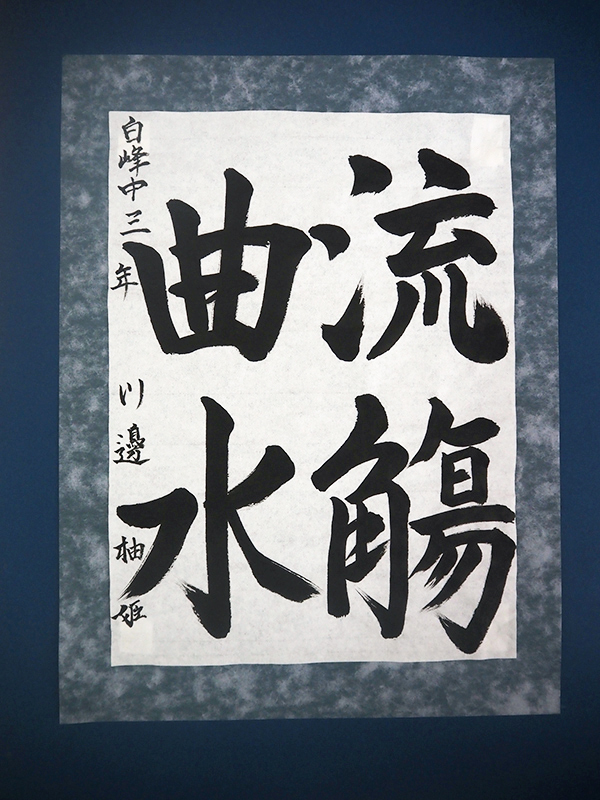 流觴
曲水
白峰中三年 川邊 柚姫